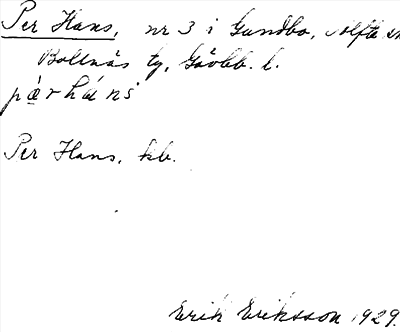 Per Hans, nr 3 i Gundbo, Alfta sn
Bollnäs tg, Gävleb. l.
pæ̀rhá ns
Per Hans, kb.
Erik Eriksson 1929.